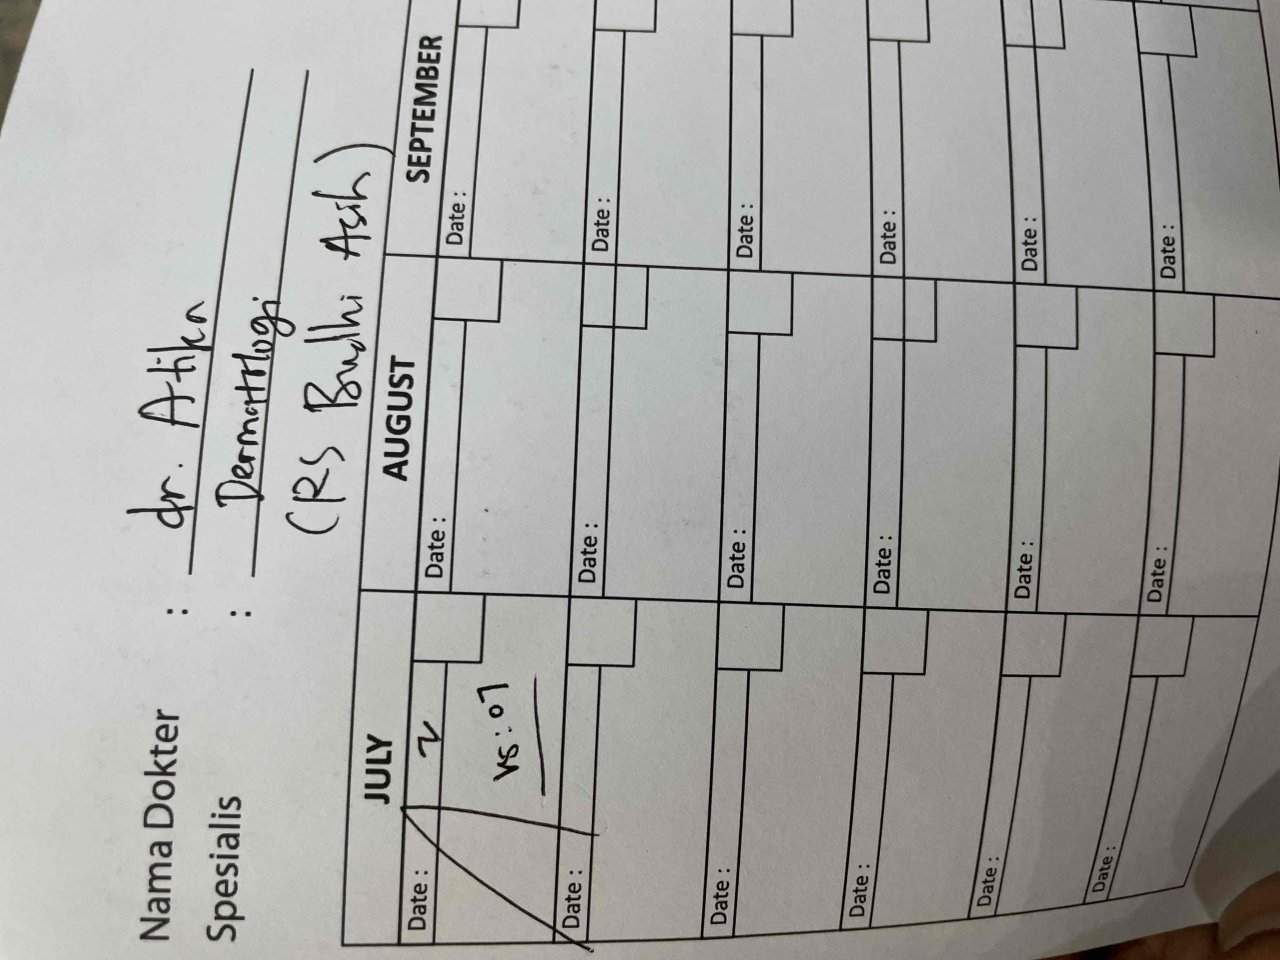 Nama Dokter : dr. Atika
Spesialis : Dermatologi
(RS Budhi Asih)
JULY AUGUST SEPTEMBER
Date : 2 Date : Date :
15:07
Date : Date : Date :
Date : Date : Date :
Date : Date : Date :
Date : Date : Date :
Date : Date : Date :